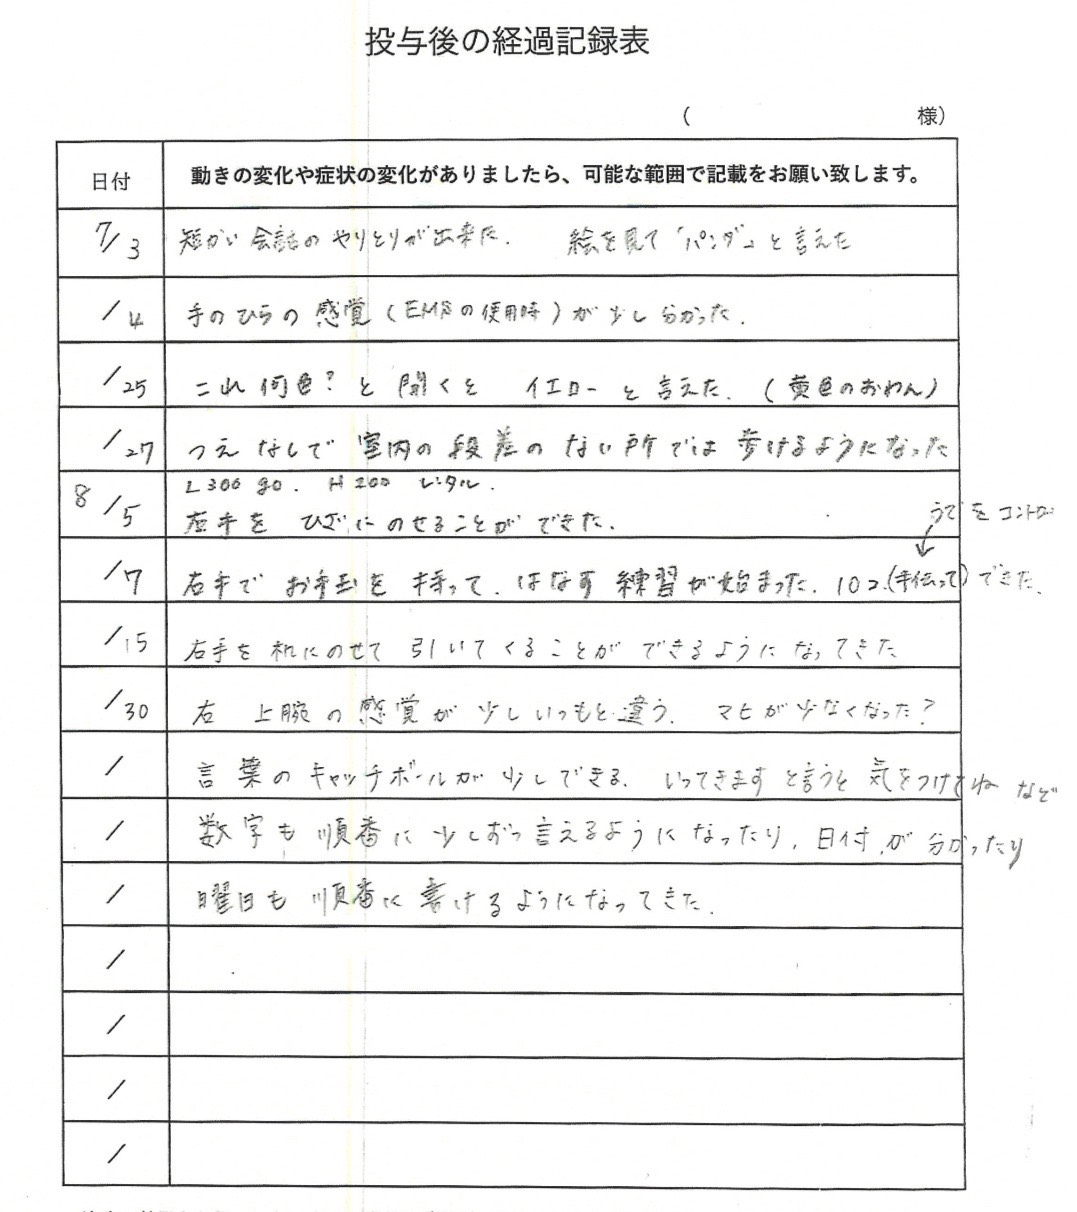 投与後の経過記録表
( 様)
日付 動きの変化や症状の変化がありましたら、可能な範囲で記載をお願い致します。
7/3 短かい会話のやりとりが出来た. 絵を見て「パンダ」と言えた
/4 手のひらの感覚(EMSの使用時)が少し分かった.
/25 これ何色?と聞くと イエローと言えた.(黄色のおわん)
/27 つえなしで室内の段差のない所では歩けるようになった
L300 go. H200 レンタル.
8/5 右手をひざにのせることができた.
うでをコントロール
/7 右手でお手玉を持って.はなす練習が始まった. 10コ.(手伝って)できた.
/15 右手を机にのせて引いてくることができるようになってきた
/30 右 上腕の感覚が少しいつもと違う. マヒが少なくなった?
/ 言葉のキャッチボールが少しできる. いってきますと言うと気をつけてね など
/ 数字も順番に少しずつ言えるようになったり,日付.が分かったり
/ 曜日も順番に書けるようになってきた.
/
/
/
/